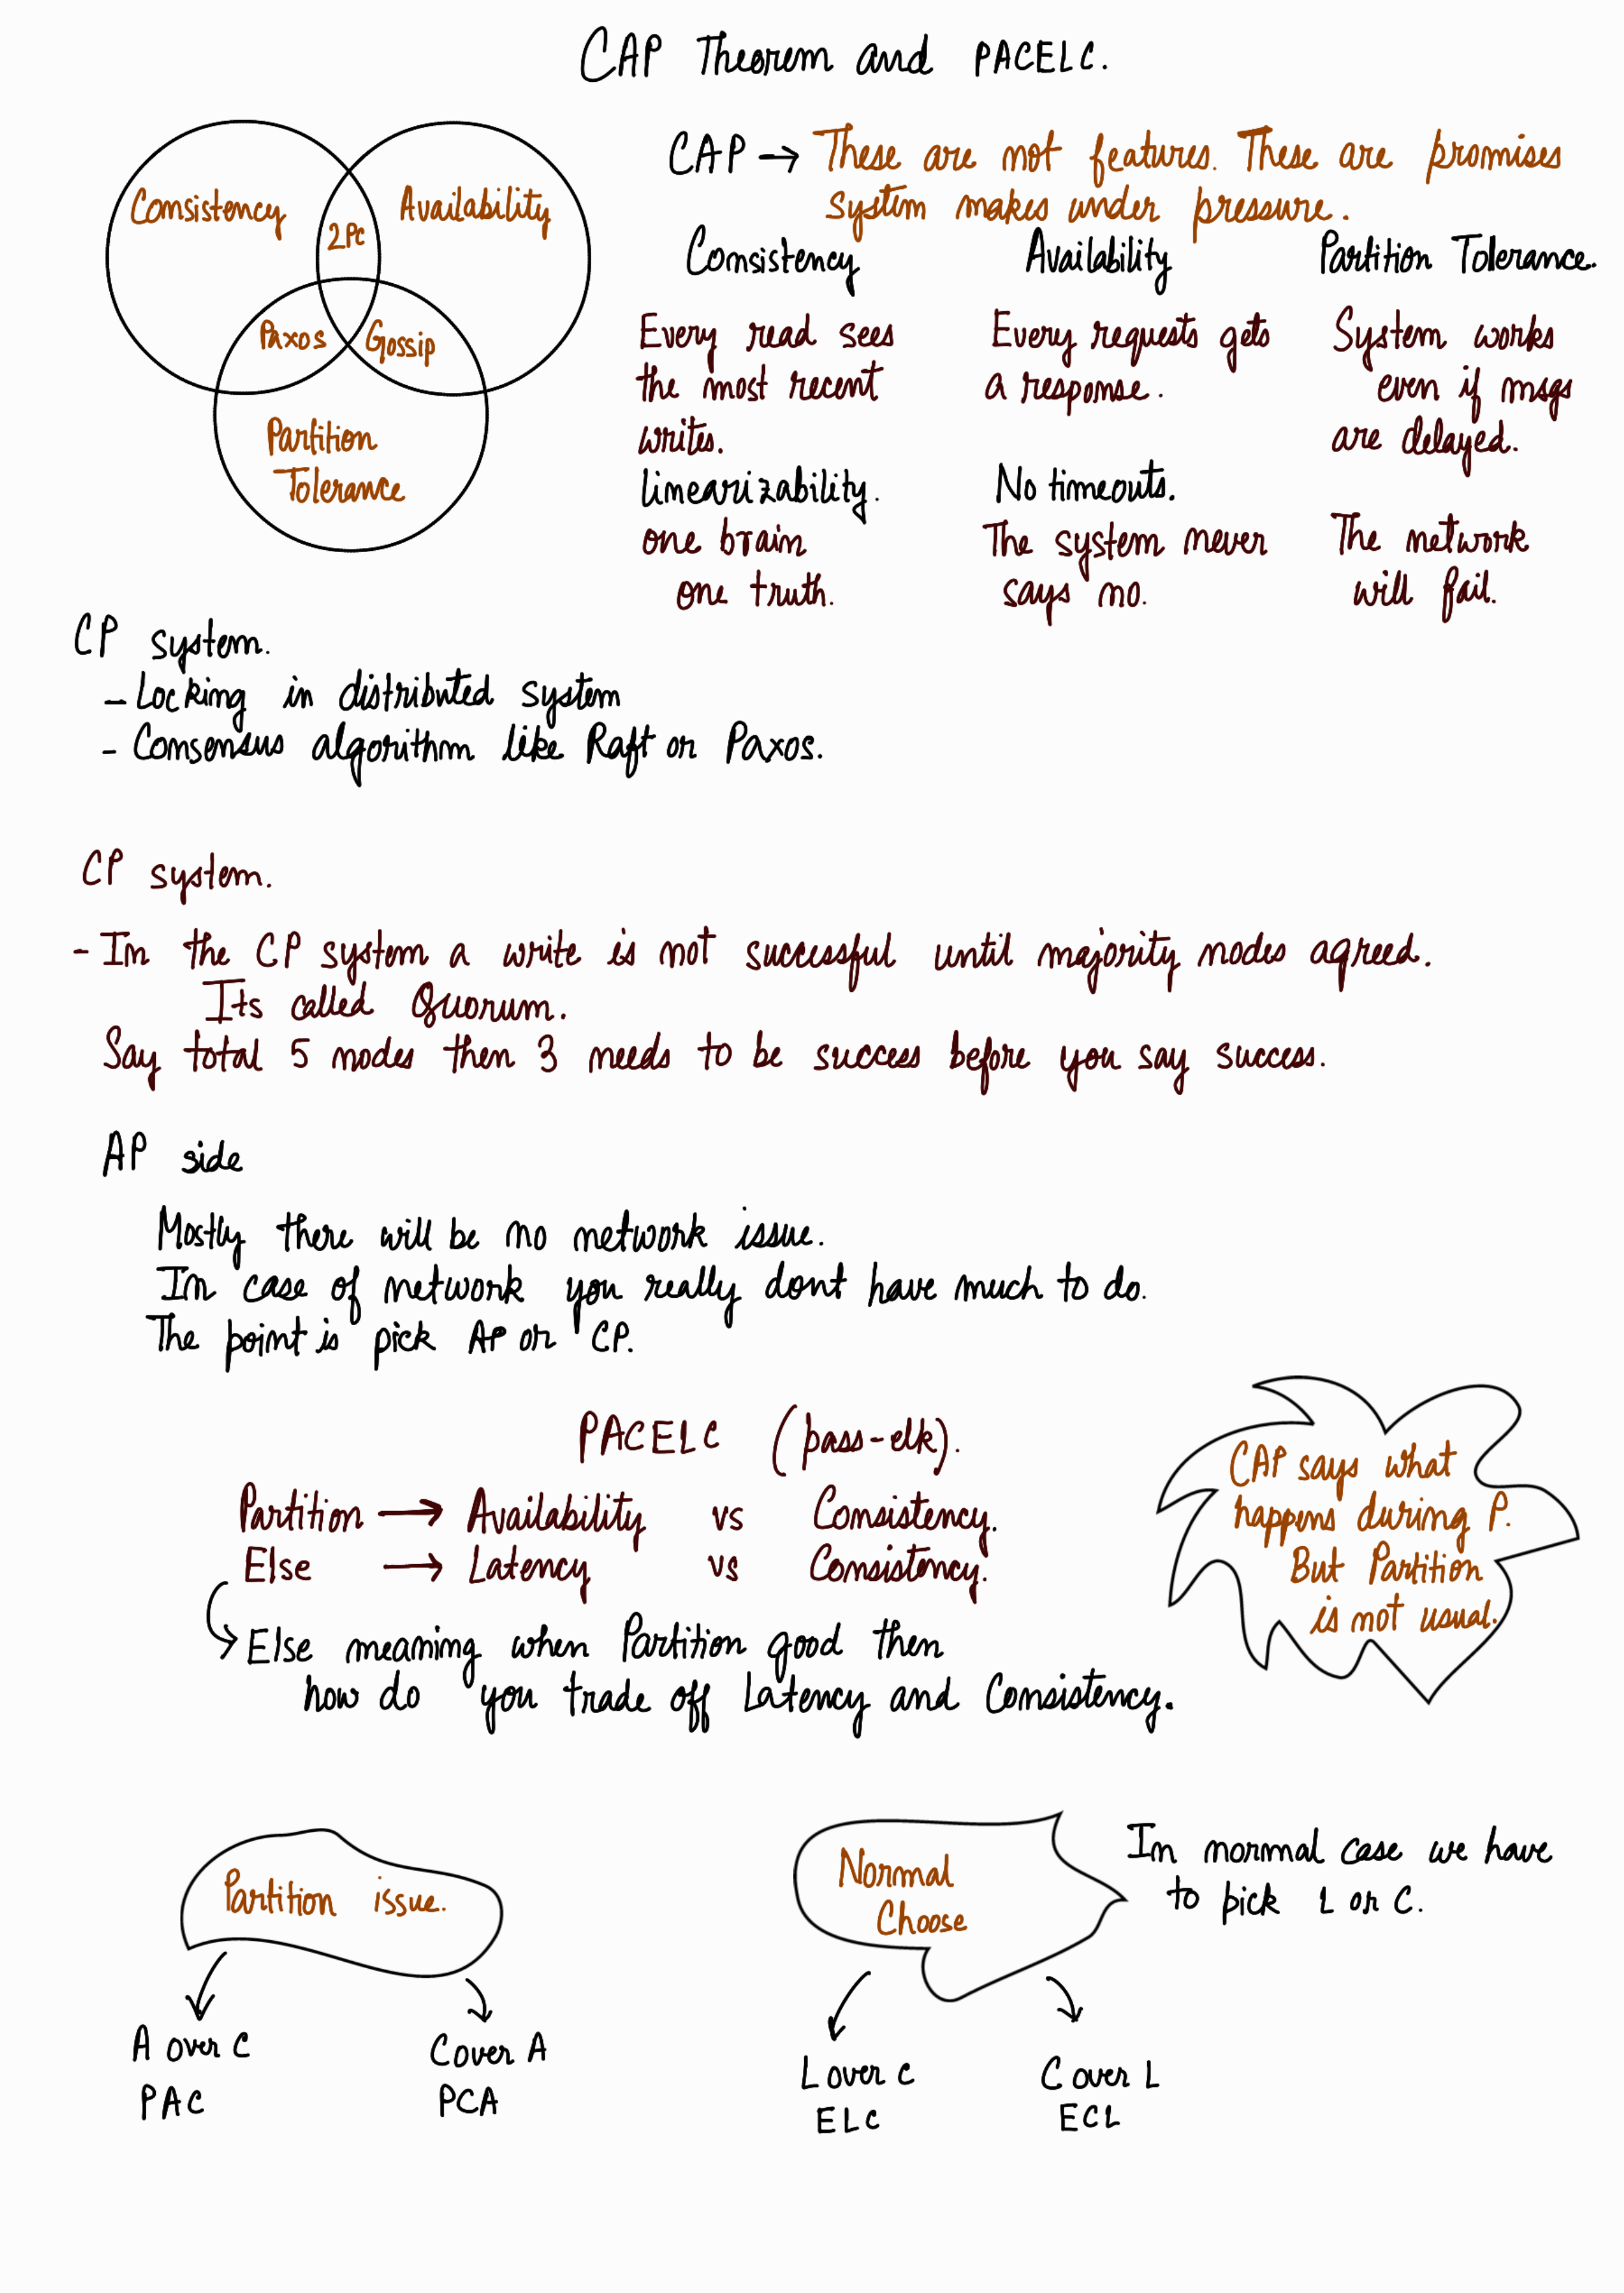 CAP Theorem and PACELC.
Consistency
Availability
2Pc
Paxos
Gossip
Partition
Tolerance
CAP → These are not features. These are promises
system makes under pressure.
Consistency
Every read sees
the most recent
writes.
linearizability.
one brain
one truth.
Availability
Every requests gets
a response.
No timeouts.
The system never
says no.
Partition Tolerance.
System works
even if msgs
are delayed.
The network
will fail.
CP system.
- Locking in distributed system
- Consensus algorithm like Raft or Paxos.
CP system.
- In the CP system a write is not successful until majority nodes agreed.
Its called Quorum.
Say total 5 nodes then 3 needs to be success before you say success.
AP side
Mostly there will be no network issue.
In case of network you really dont have much to do.
The point is pick AP or CP.
PACELC (pass-elk).
Partition → Availability vs Consistency.
Else → Latency vs Consistency.
Else meaning when Partition good then
how do you trade off Latency and Consistency.
CAP says what
happens during P.
But Partition
is not usual.
Partition issue.
A over C
PAC
C over A
PCA
Normal
Choose
In normal case we have
to pick L or C.
L over C
ELC
C over L
ECL